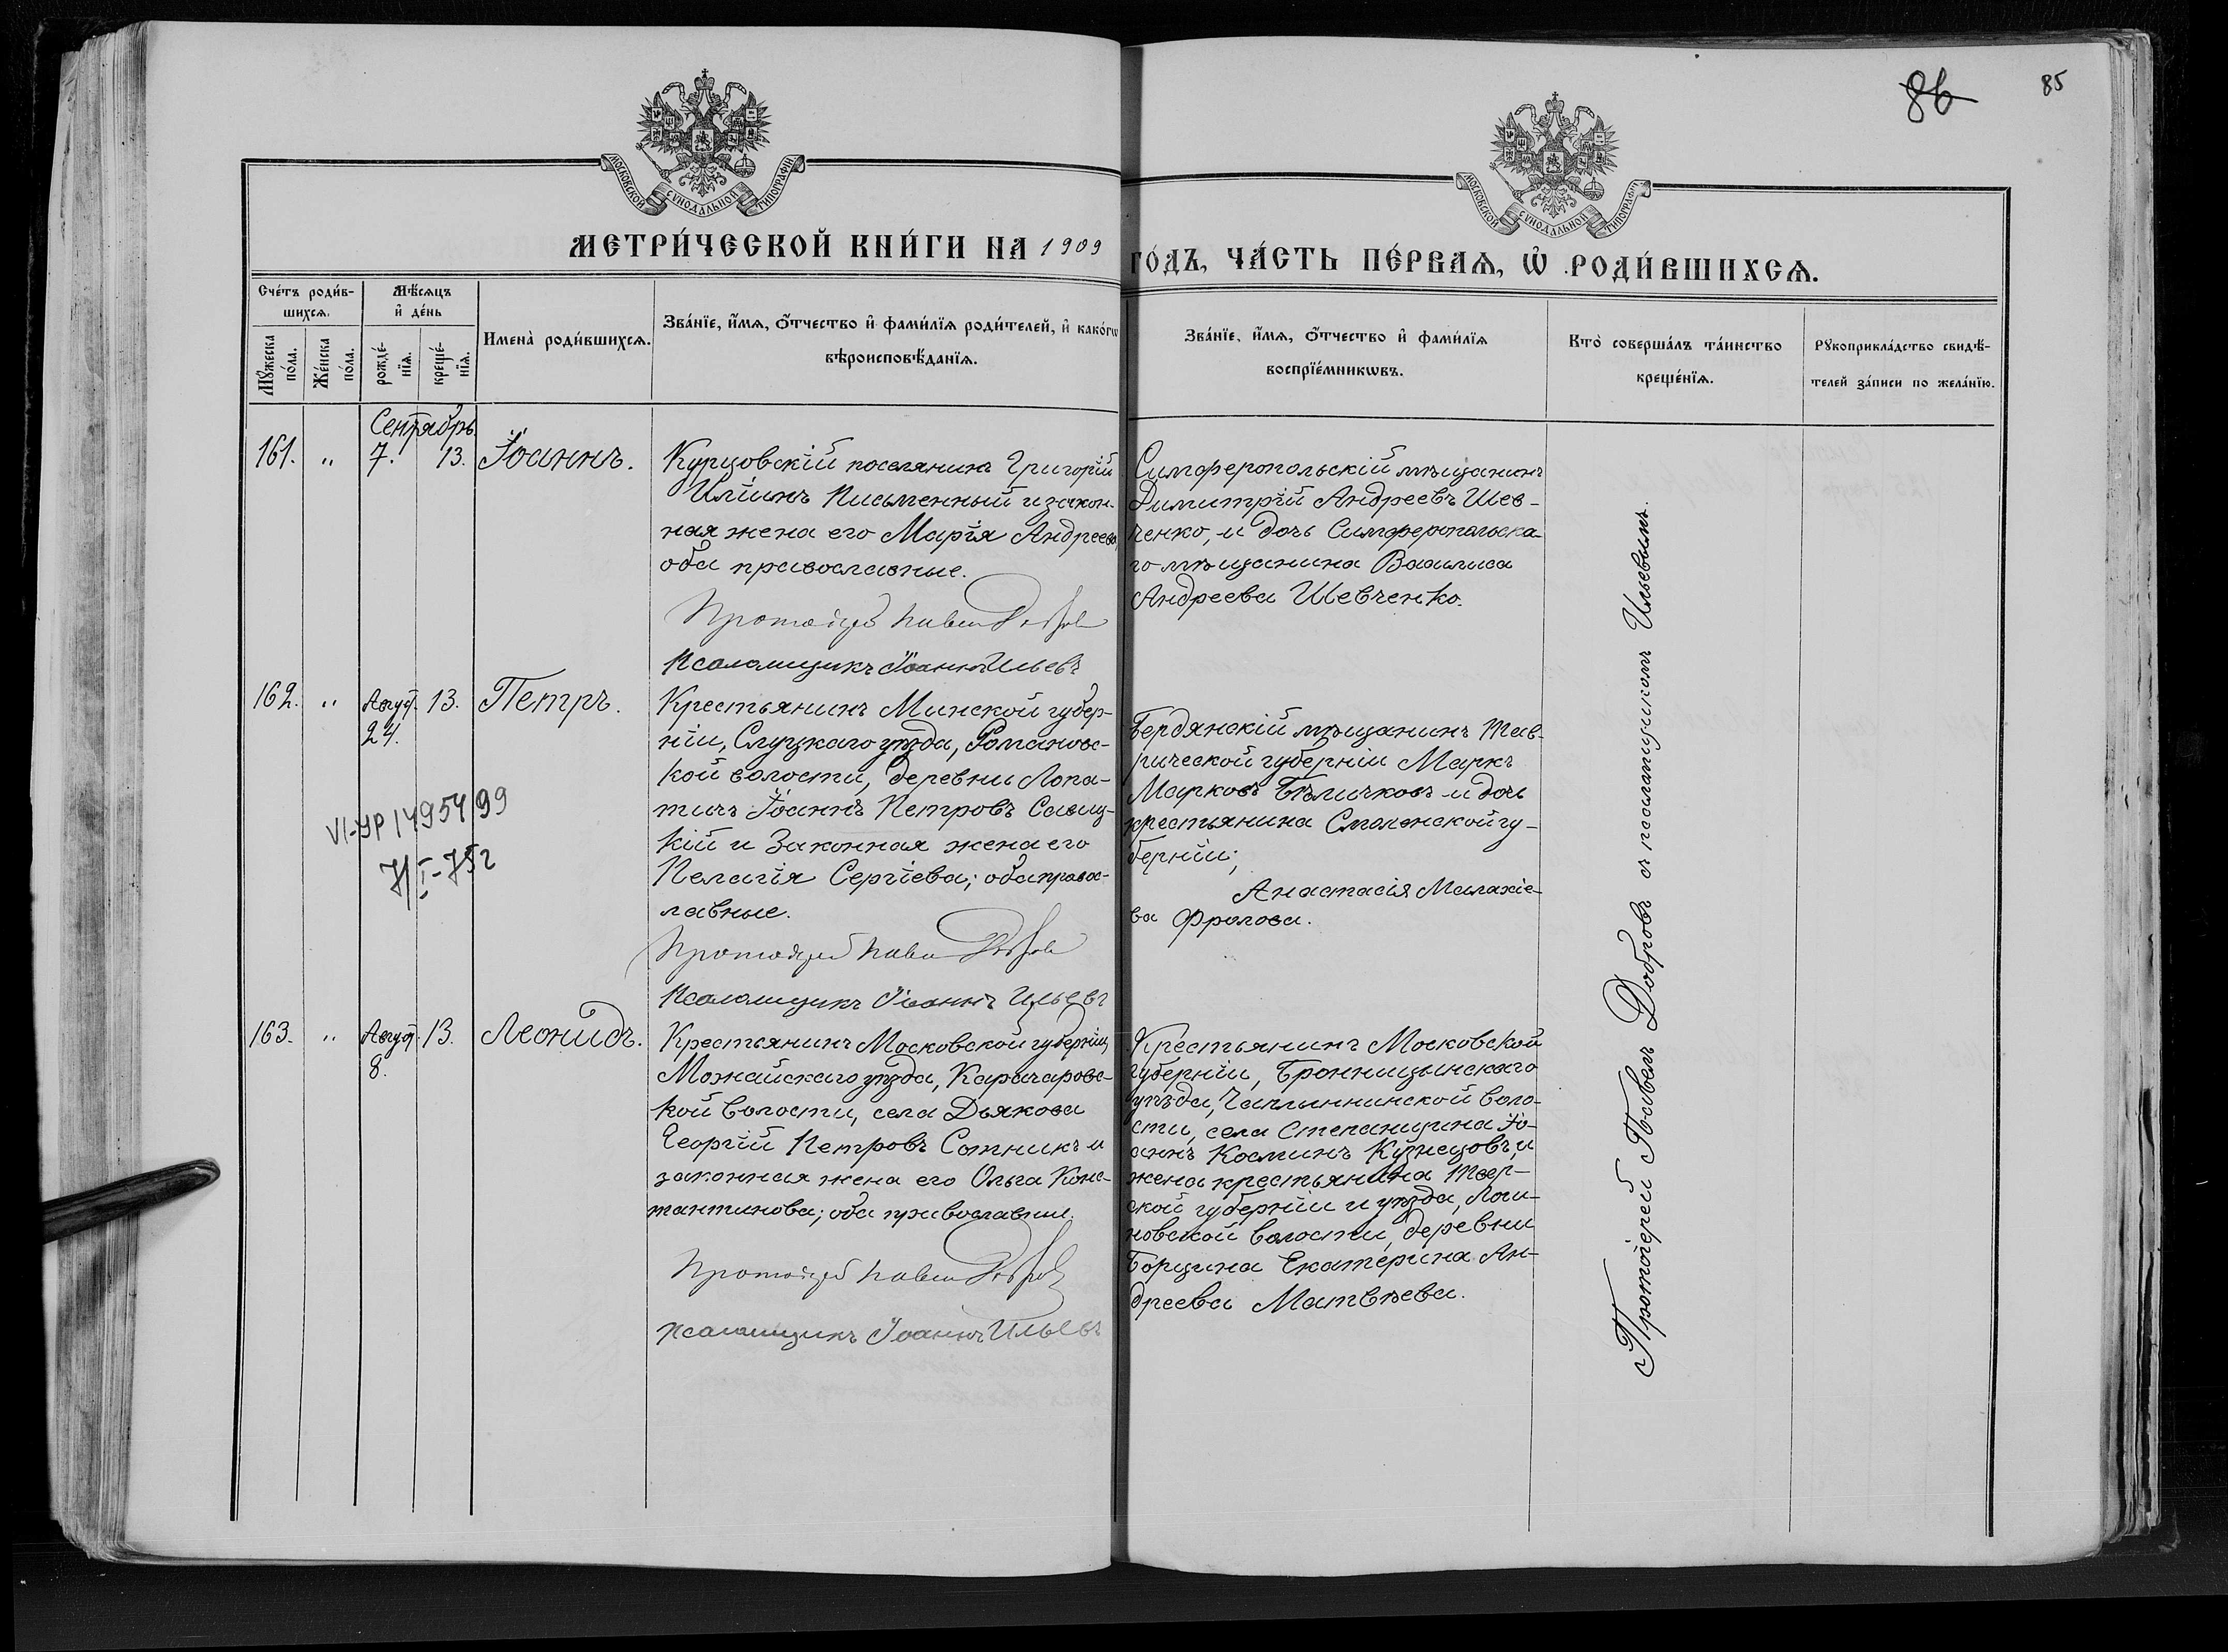 86
85
МОСКОВСКОЙ СУНОДАЛЬНОЙ ТИПОГРАФІИ
МОСКОВСКОЙ СУНОДАЛЬНОЙ ТИПОГРАФІИ
МЕТРИ́ЧЕСКОЙ КНИ́ГИ НА 1909
ГО́ДЪ, ЧА́СТЬ ПЕ́РВАѦ, Ѡ҆ РОДИ́ВШИХСѦ.
Сче́тъ роди́в-
шихсѧ.
Мѣ́сѧцъ
и҆ де́нь
Мꙋ́жеска по́ла.
Же́нска по́ла.
рожде́-
нїѧ.
креще́-
нїѧ.
Имена̀ роди́вшихсѧ.
Зва́нїе, и҆́мѧ, ѻ҆́тчество и҆ фами́лїѧ роди́телей, и҆ како́гѡ
вѣроисповѣ́данїѧ.
Зва́нїе, и҆́мѧ, ѻ҆́тчество и҆ фами́лїѧ
воспрїе́мникѡвъ.
Кто̀ соверша́лъ та́инство
креще́нїѧ.
Рꙋкоприкла́дство свидѣ́-
телей за́писи по жела́нїю.
Сентябрь
161. " 7. 13. Іоаннъ.
Курцовскій поселянинъ Григорій
Иліинъ Письменный и закон-
ная жена его Марія Андреева
оба православные.
Протоіерей Павелъ Добровъ
Псаломщикъ Іоаннъ Ильевъ
Симферопольскій мѣщанинъ
Димитрій Андреевъ Шев-
ченко, и дочь Симферопольска-
го мѣщанина Василиса
Андреева Шевченко.
162. " Август. 13. Петръ.
24.
VI-УР 1495499
7/I-75г
Крестьянинъ Минской губер-
ніи, Слуцкаго уѣзда, Романовс-
кой волости, деревни Лопа-
тичъ Іоаннъ Петровъ Савиц-
кій и законная жена его
Пелагія Сергіева; оба правос-
лавные.
Протоіерей Павелъ Добровъ
Псаломщикъ Іоаннъ Ильевъ
Бердянскій мѣщанинъ Тав-
рической губерніи Маркъ
Марковъ Бѣличковъ и дочь
крестьянина Смоленской гу-
берніи;
Анастасія Малахіе-
ва Фролова.
163. " Август. 13. Леонидъ.
8.
Крестьянинъ Московской губерніи,
Можайскаго уѣзда, Карачаровс-
кой волости, села Дьякова
Георгій Петровъ Сотникъ и
законная жена его Ольга Конс-
тантинова; оба православные.
Протоіерей Павелъ Добровъ
Псаломщикъ Іоаннъ Ильевъ
Крестьянинъ Московской
губерніи, Бронницынскаго
уѣзда, воло-
сти, села Степанщина Іо-
аннъ Косминъ Кузнецовъ, и
жена крестьянина Твер-
ской губерніи и уѣзда,
новской волости, деревни
Борщина Екатерина Ан-
дреева Матвѣева.
Протоіерей Павелъ Добровъ съ псаломщикомъ Ильевымъ.